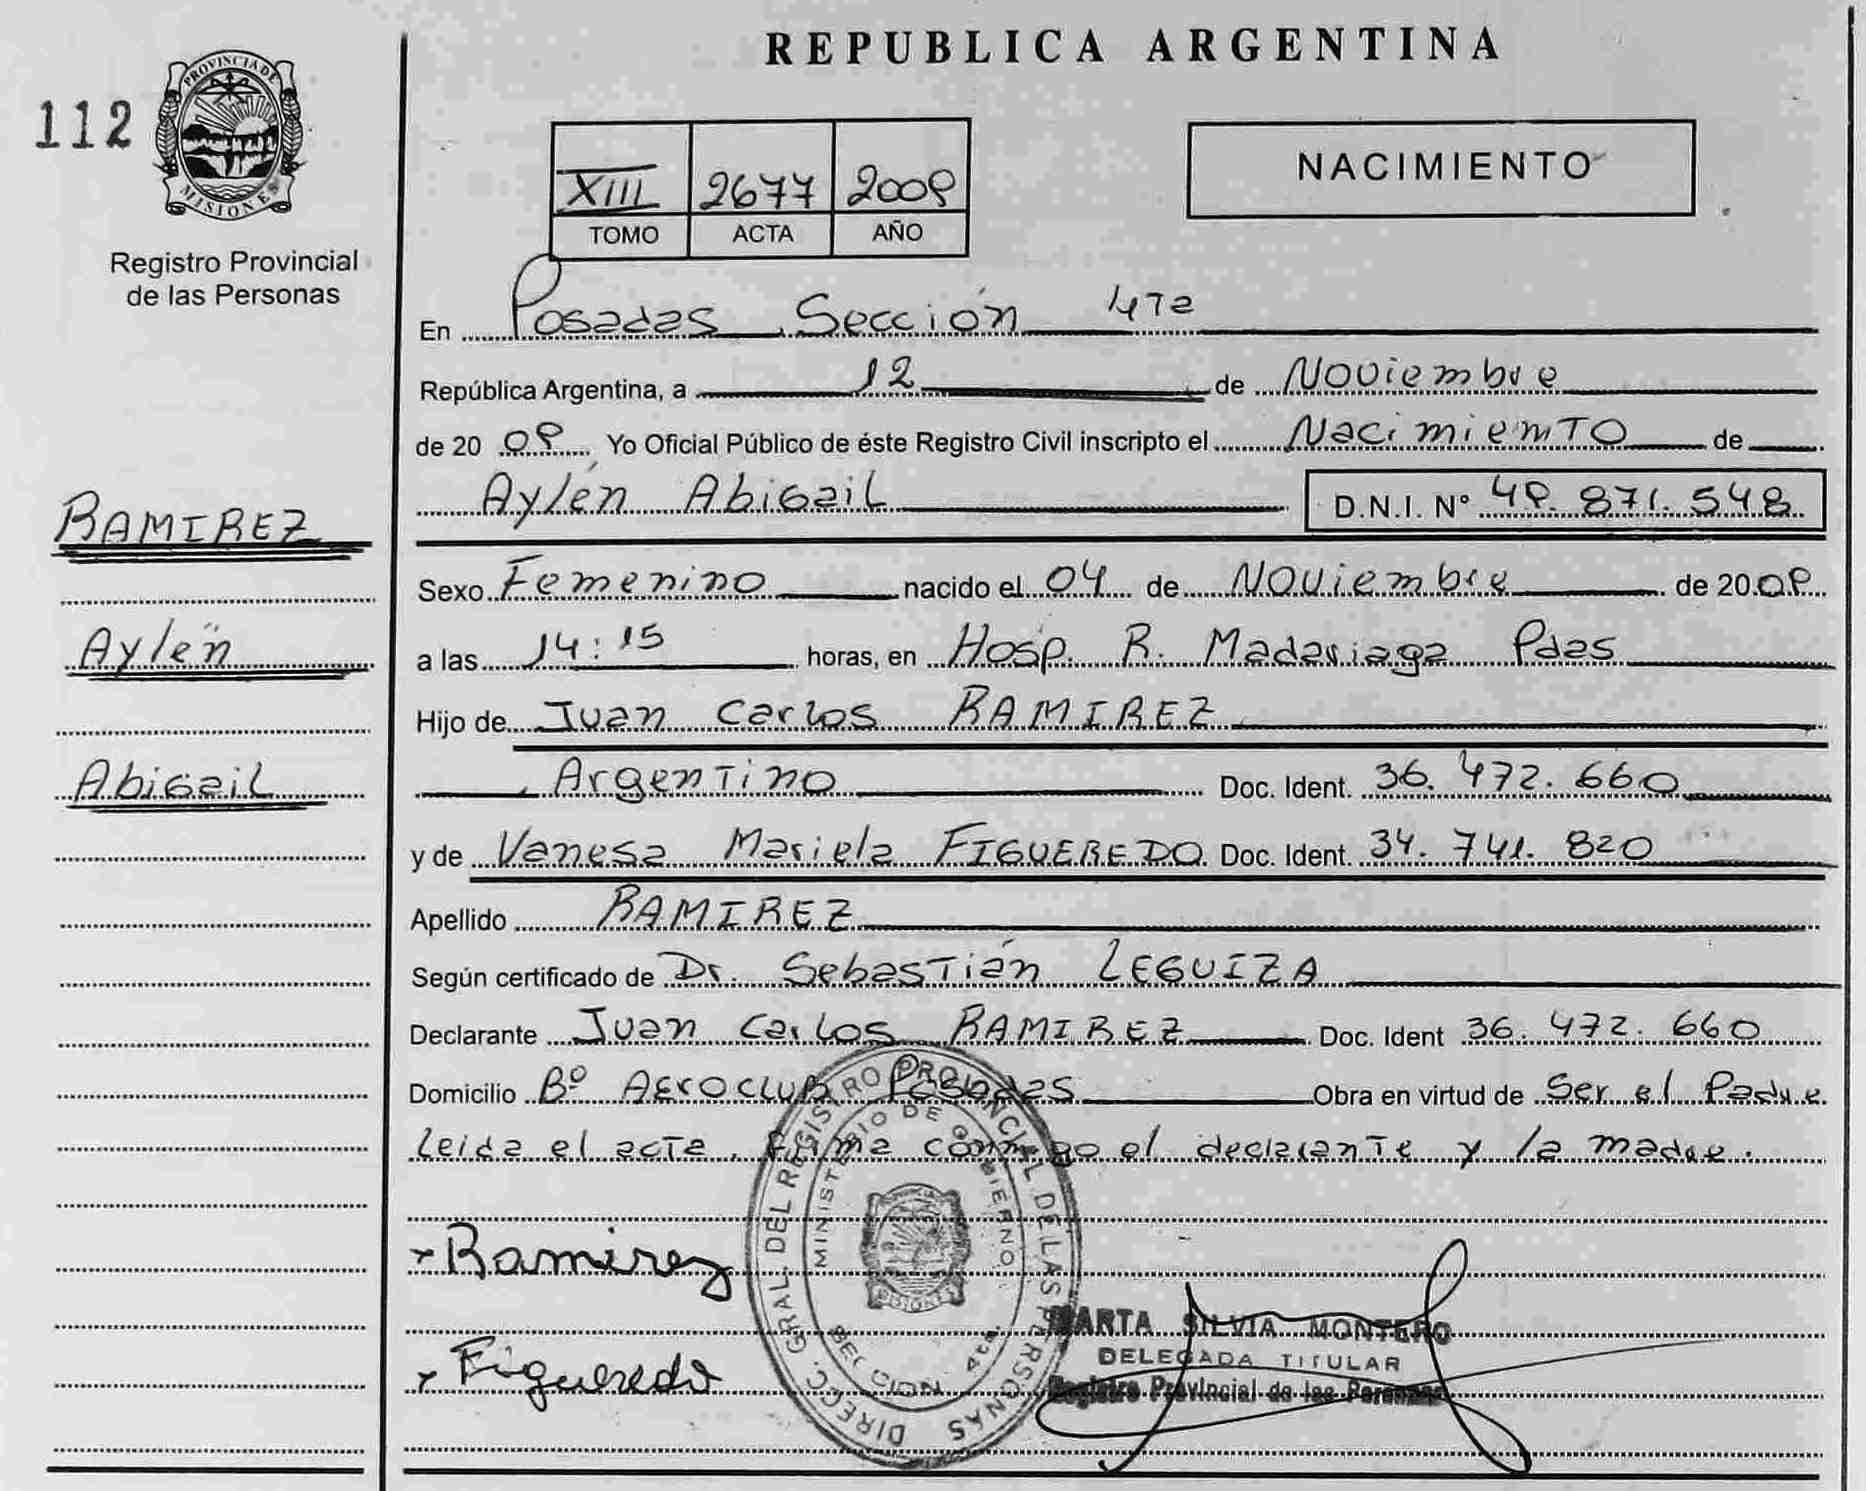 REPUBLICA ARGENTINA
112
PROVINCIA DE
MISIONES
Registro Provincial
de las Personas
XIII 2677 2009
TOMO ACTA AÑO
NACIMIENTO
En Posadas Sección 4ta
República Argentina, a 12 de Noviembre
de 20 09 Yo Oficial Público de éste Registro Civil inscripto el Nacimiento de
Aylén Abigail D.N.I. N° 49.871.548
RAMIREZ
Aylén
Abigail
Sexo Femenino nacido el 04 de Noviembre de 2009
a las 14:15 horas, en Hosp. R. Madariaga Pdas
Hijo de Juan Carlos RAMIREZ
, Argentino Doc. Ident. 36.472.660
y de Vanesa Mariela FIGUEREDO Doc. Ident. 34.741.820
Apellido RAMIREZ
Según certificado de Dr. Sebastián LEGUIZA
Declarante Juan Carlos RAMIREZ Doc. Ident 36.472.660
Domicilio Bº AEROCLUB Posadas Obra en virtud de Ser el Padre
Leida el acta, firma conmigo el declarante y la madre.
Ramirez
Figueredo
DIRECC. GRAL. DEL REGISTRO PROVINCIAL DE LAS PERSONAS
MINISTERIO DE GOBIERNO
SECCION 4ta.
MISIONES
MARTA SILVIA MONTERO
DELEGADA TITULAR
Registro Provincial de las Personas